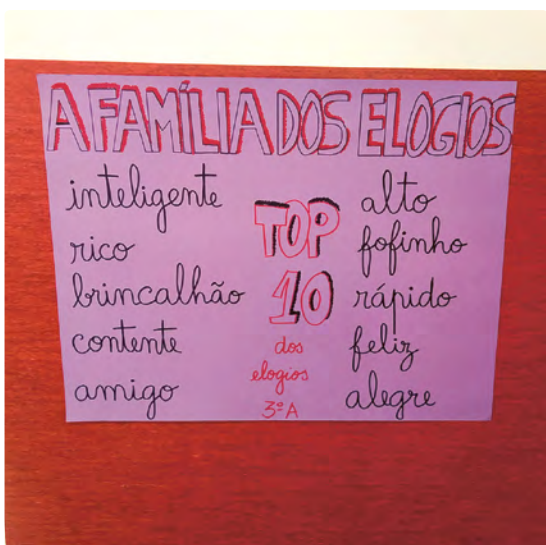 A FAMÍLIA DOS ELOGIOS
inteligente
rico
brincalhão
contente
amigo
TOP
10
dos
elogios
3º A
alto
fofinho
rápido
feliz
alegre